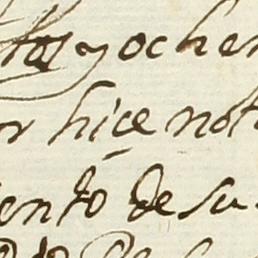 tas y ochen
r hice not
ento de su